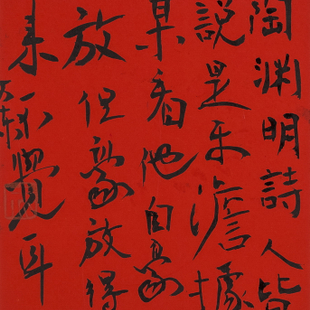 陶渊明詩人皆
說是平澹據
某看他自豪
放但豪放得
来不覺耳